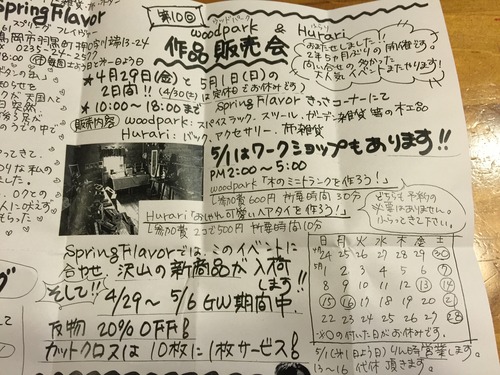 Spring Flavor
第10回
woodpark & Hurari
ウッドパーク
ふらり
作品販売会
おまたせしました!!
2年5ヶ月ぶりの開催です。
問い合せの多かった
大人気イベントまたやります!
★4月29日(金)と5月1日(日)の
2日間!!(4/30(土)は定休日でお休みです)
★10:00〜18:00まで
Spring Flavor きっさコーナーにて
販売内容
woodpark:スパイスラック、スツール、ガーデン雑貨等の木工品
Hurari:バック、アクセサリー、布雑貨
5/1はワークショップもあります!!
PM 2:00〜5:00
woodpark「木のミニトランクを作ろう!」
参加費600円 所要時間30分
Hurari「おしゃれ可愛いヘアタイを作ろう!」
参加費 2コで500円 所要時間10分
どちらも予約の
必要はありません。
ふらっときて下さい。
Spring Flavorでは、このイベントに
合わせ、沢山の新商品が入荷
します!!
そして!!
4/29〜5/6 GW期間中
反物 20%OFF!
カットクロスは10枚に1枚サービス!
日 月 火 水 木 金 土
24 25 26 27 28 29 30
1 2 3 4 5 6 7
8 9 10 11 12 13 14
15 16 17 18 19 20 21
22 23 24 25 26 27 28
※○の付いた日がお休みです。
5/1(日よう日)は営業します。
13〜16 代休頂きます。